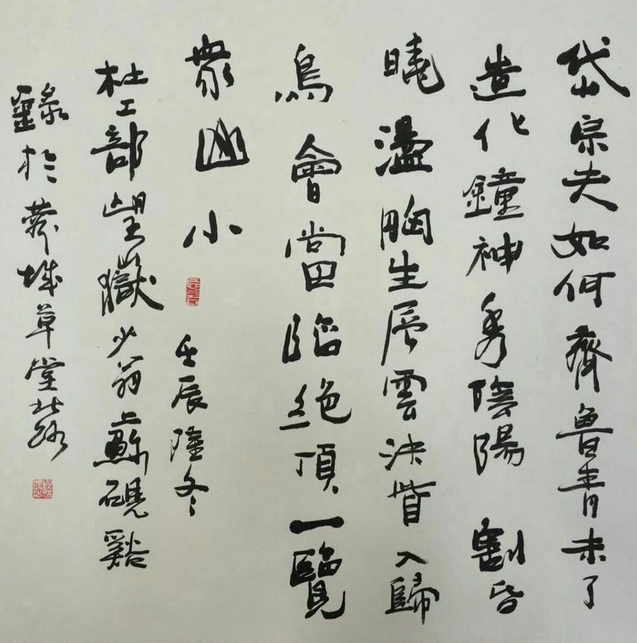 岱宗夫如何齊魯青未了
造化鐘神秀陰陽割昏
曉盪胸生层雲決眥入歸
鳥會當臨絕頂一覽
眾山小
壬辰隆冬
杜工部望嶽少翁蘇硯谿
錄於蓉城草堂北路